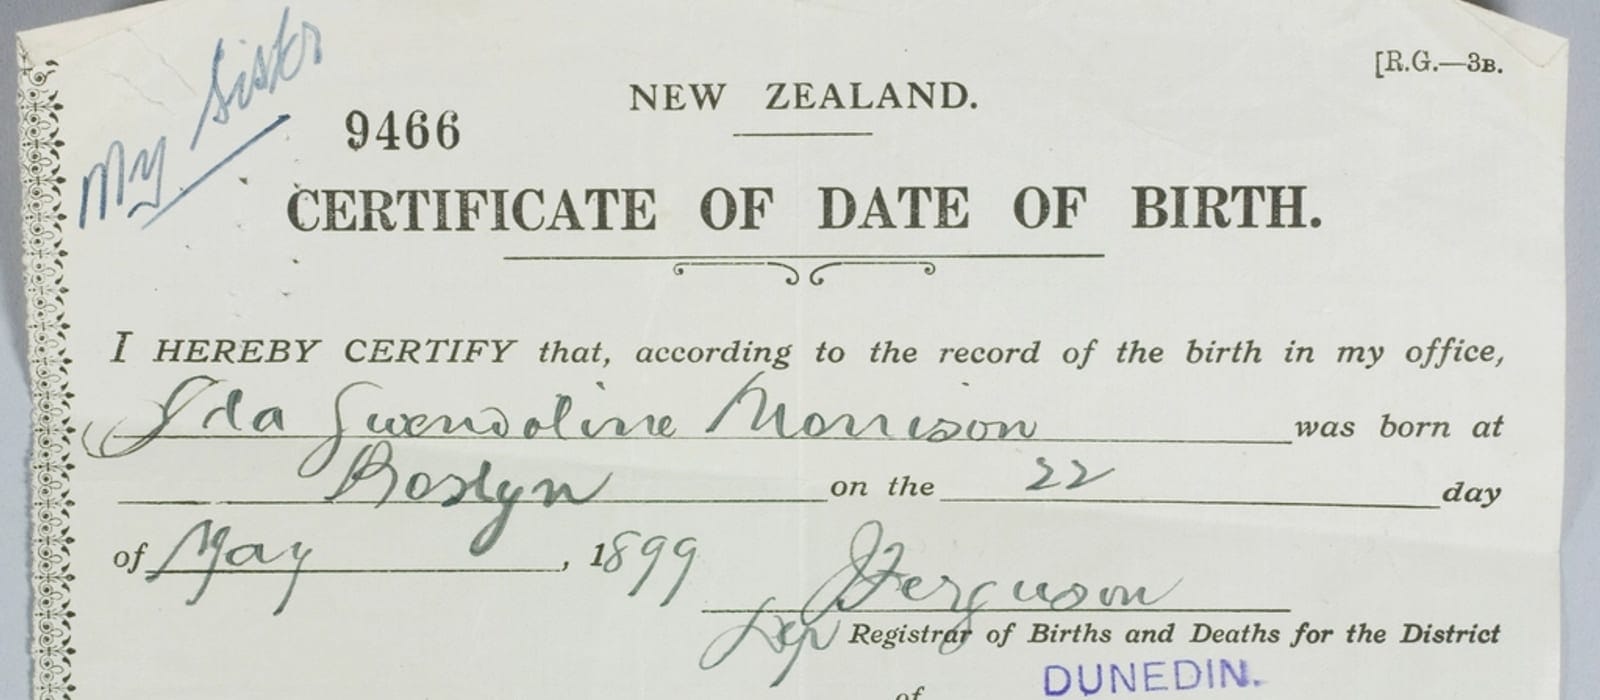 My Sister
[R.G.—3B.
NEW ZEALAND.
9466
CERTIFICATE OF DATE OF BIRTH.
I HEREBY CERTIFY that, according to the record of the birth in my office,
Ida Gwendoline Morrison was born at
Roslyn on the 22 day
of May, 1899
J Ferguson
Dep Registrar of Births and Deaths for the District
of DUNEDIN.